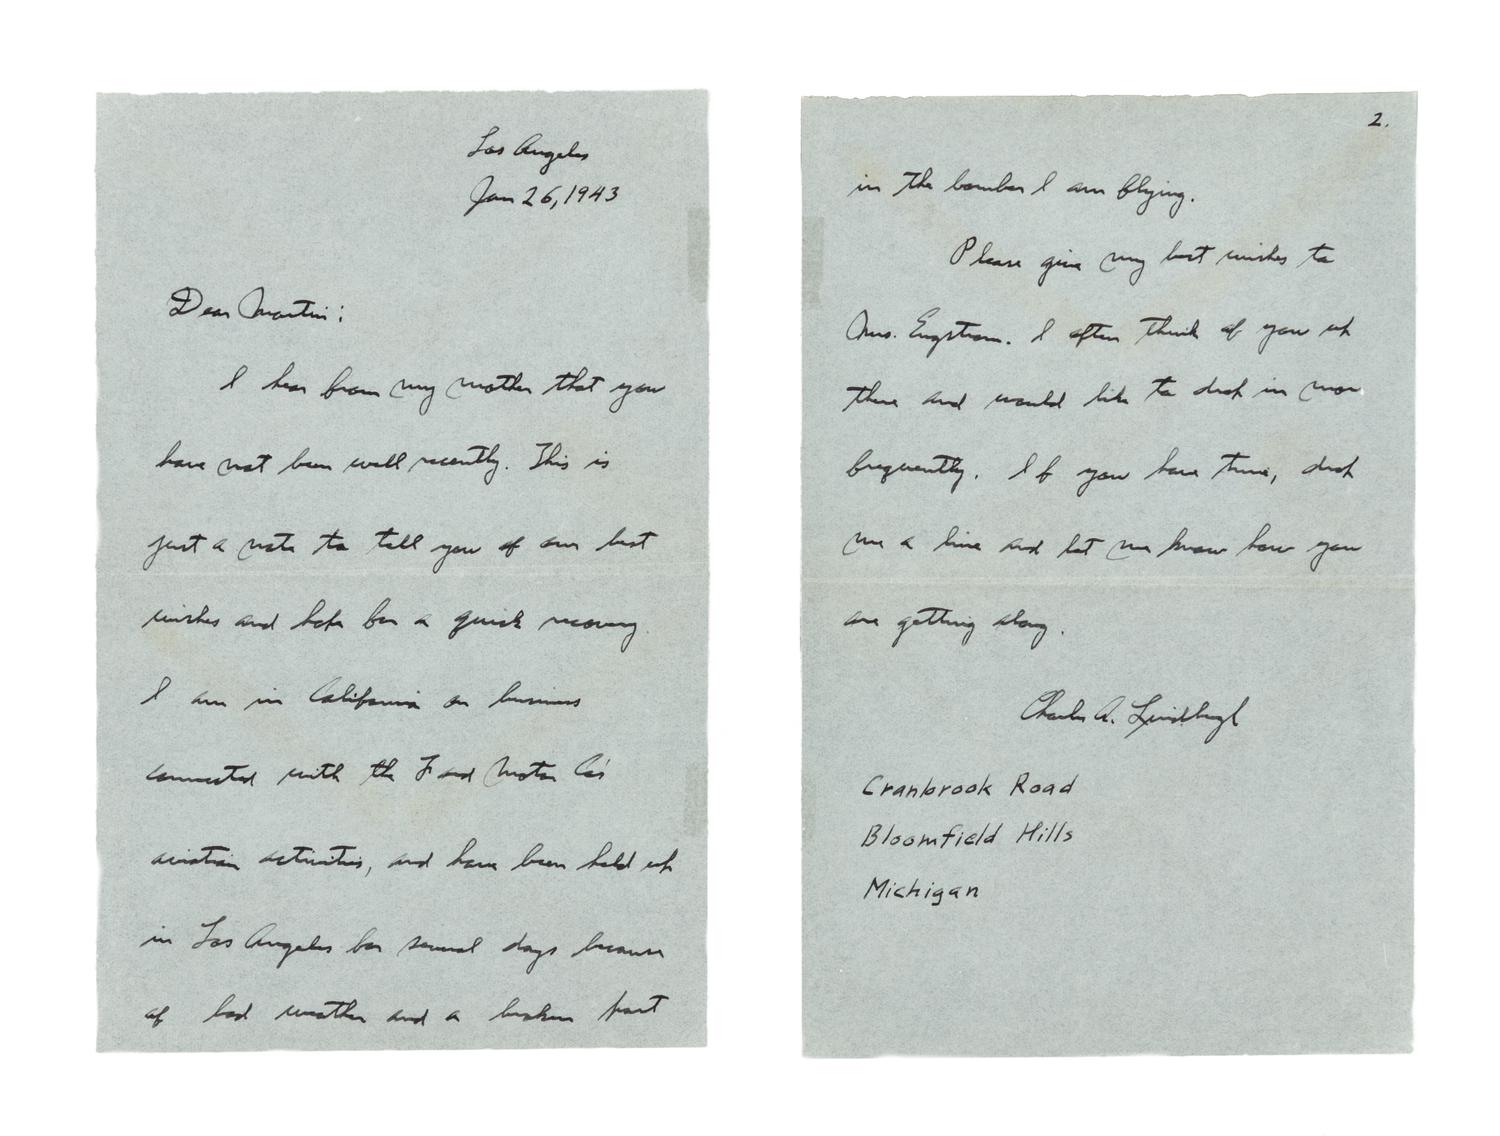 Los Angeles
Jan 26, 1943
Dear Martin:
I hear from my mother that you
have not been well recently. This is
just a note to tell you of our best
wishes and hope for a quick recovery.
I am in California on business
connected with the Ford Motor Co's
aviation activities, and have been held up
in Los Angeles for several days because
of bad weather and a broken part
2.
in the bomber I am flying.
Please give my best wishes to
Mrs. Engstrom. I often think of you up
there and would like to drop in more
frequently. If you have time, drop
me a line and let me know how you
are getting along.
Charles A. Lindbergh
Cranbrook Road
Bloomfield Hills
Michigan